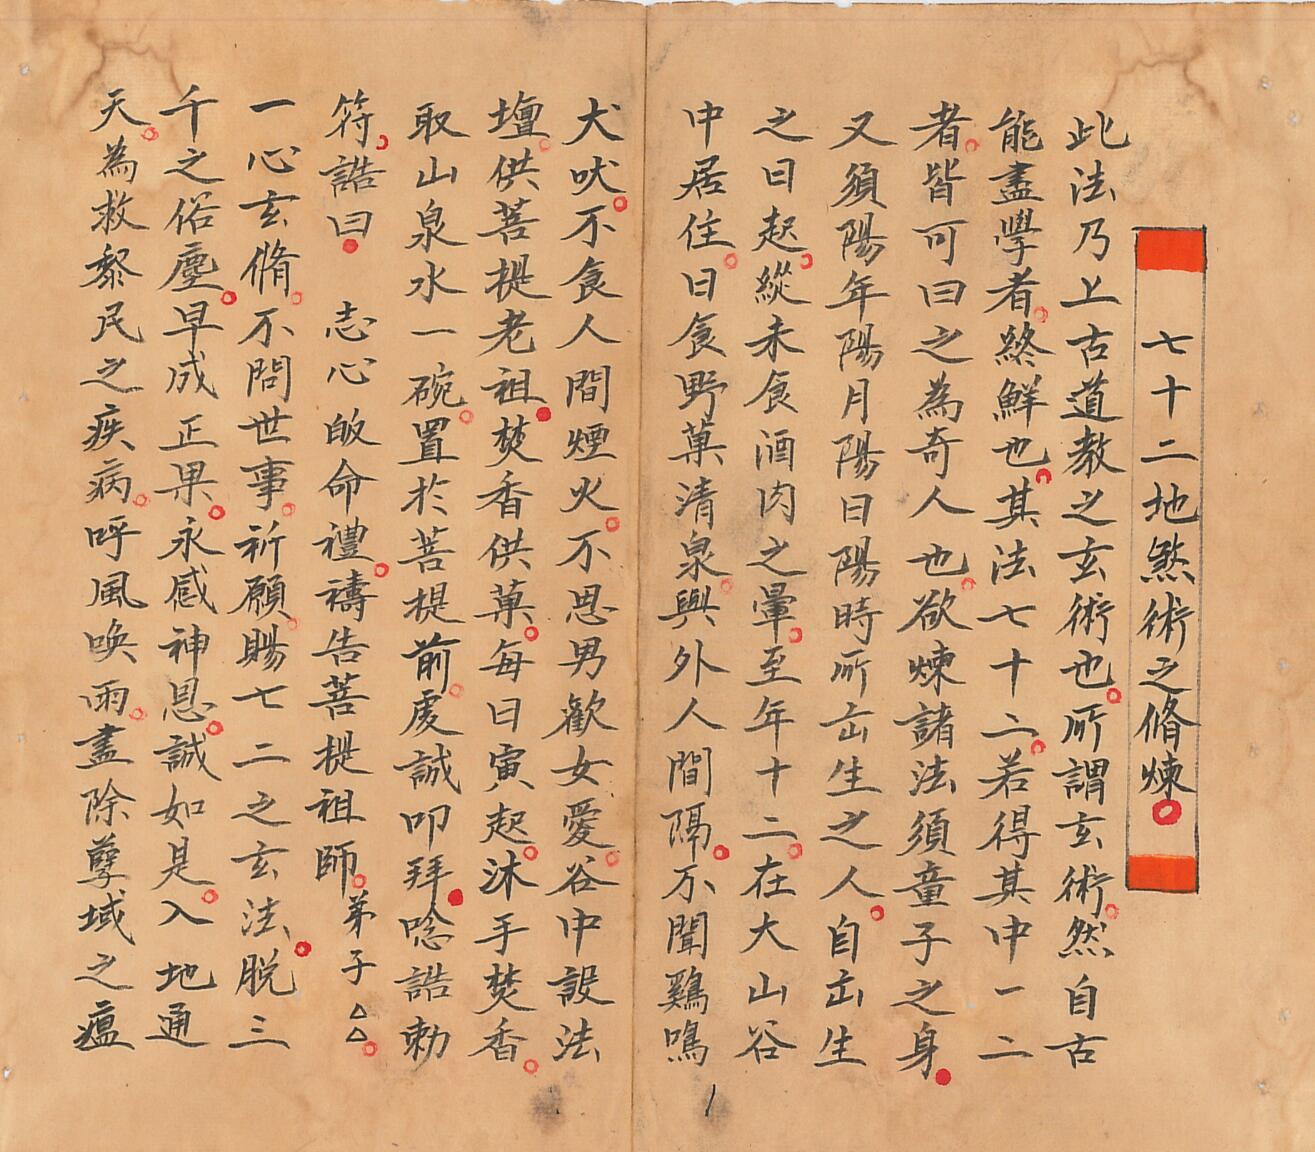 七十二地煞術之脩煉
此法乃上古道教之玄術也所謂玄術然自古
能盡學者終鮮也其法七十二若得其中一二
者皆可曰之為奇人也欲煉諸法須童子之身
又須陽年陽月陽日陽時所出生之人自出生
之日起縱未食酒肉之暈至年十二在大山谷
中居住日食野菓清泉與外人間隔不聞鷄鳴
犬吠不食人間煙火不思男歡女愛谷中設法
壇供菩提老祖焚香供菓每日寅起沐手焚香
取山泉水一碗置於菩提前虔誠叩拜唸誥勅
符誥曰 志心皈命禮禱告菩提祖師弟子△△
一心玄脩不問世事祈願賜七二之玄法脱三
千之俗塵早成正果永感神恩誠如是入地通
天為救黎民之疾病呼風喚雨盡除孽域之瘟
1